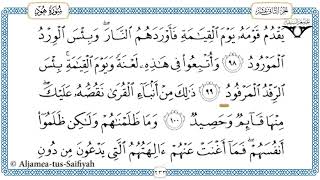 سُورَةُ هُودٍ
يَقْدُمُ قَوْمَهُ يَوْمَ الْقِيَمَةِ فَأَوْرَدَهُمُ النَّارَ وَبِئْسَ الْوِرْدُ
الْمَوْرُودُ ٩٨ وَأُتْبِعُوا فِي هَذِهِ لَعْنَةً وَيَوْمَ الْقِيَمَةِ بِئْسَ
الرِّفْدُ الْمَرْفُودُ ٩٩ ذَلِكَ مِنْ أَنْبَاءِ الْقُرَى نَقُصُّهُ عَلَيْكَ
مِنْهَا قَائِمٌ وَحَصِيدٌ ١٠٠ وَمَا ظَلَمْنَاهُمْ وَلَكِنْ ظَلَمُوا
أَنْفُسَهُمْ فَمَا أَغْنَتْ عَنْهُمْ آلِهَتُهُمُ الَّتِي يَدْعُونَ مِنْ دُونِ
© Aljamea-tus-Saifiyah
٢٣٣